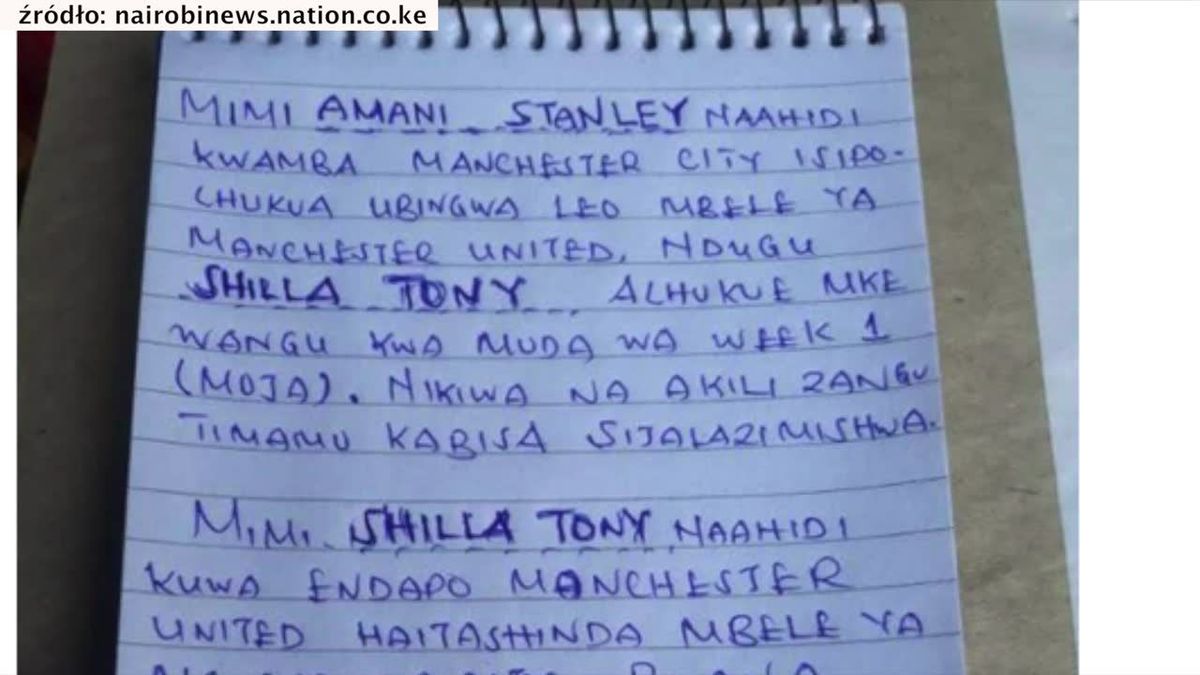 źródło: nairobinews.nation.co.ke
MIMI AMANI STANLEY NAAHIDI
KWAMBA MANCHESTER CITY ISIPO-
CHUKUA UBINGWA LEO MBELE YA
MANCHESTER UNITED, NDUGU
SHILLA TONY ALHUKUE MKE
WANGU KWA MUDA WA WEEK 1
(MOJA). NIKIWA NA AKILI ZANGU
TIMAMU KABISA SIJALAZIMISHWA.
MIMI SHILLA TONY NAAHIDI
KUWA ENDAPO MANCHESTER
UNITED HAITASHINDA MBELE YA